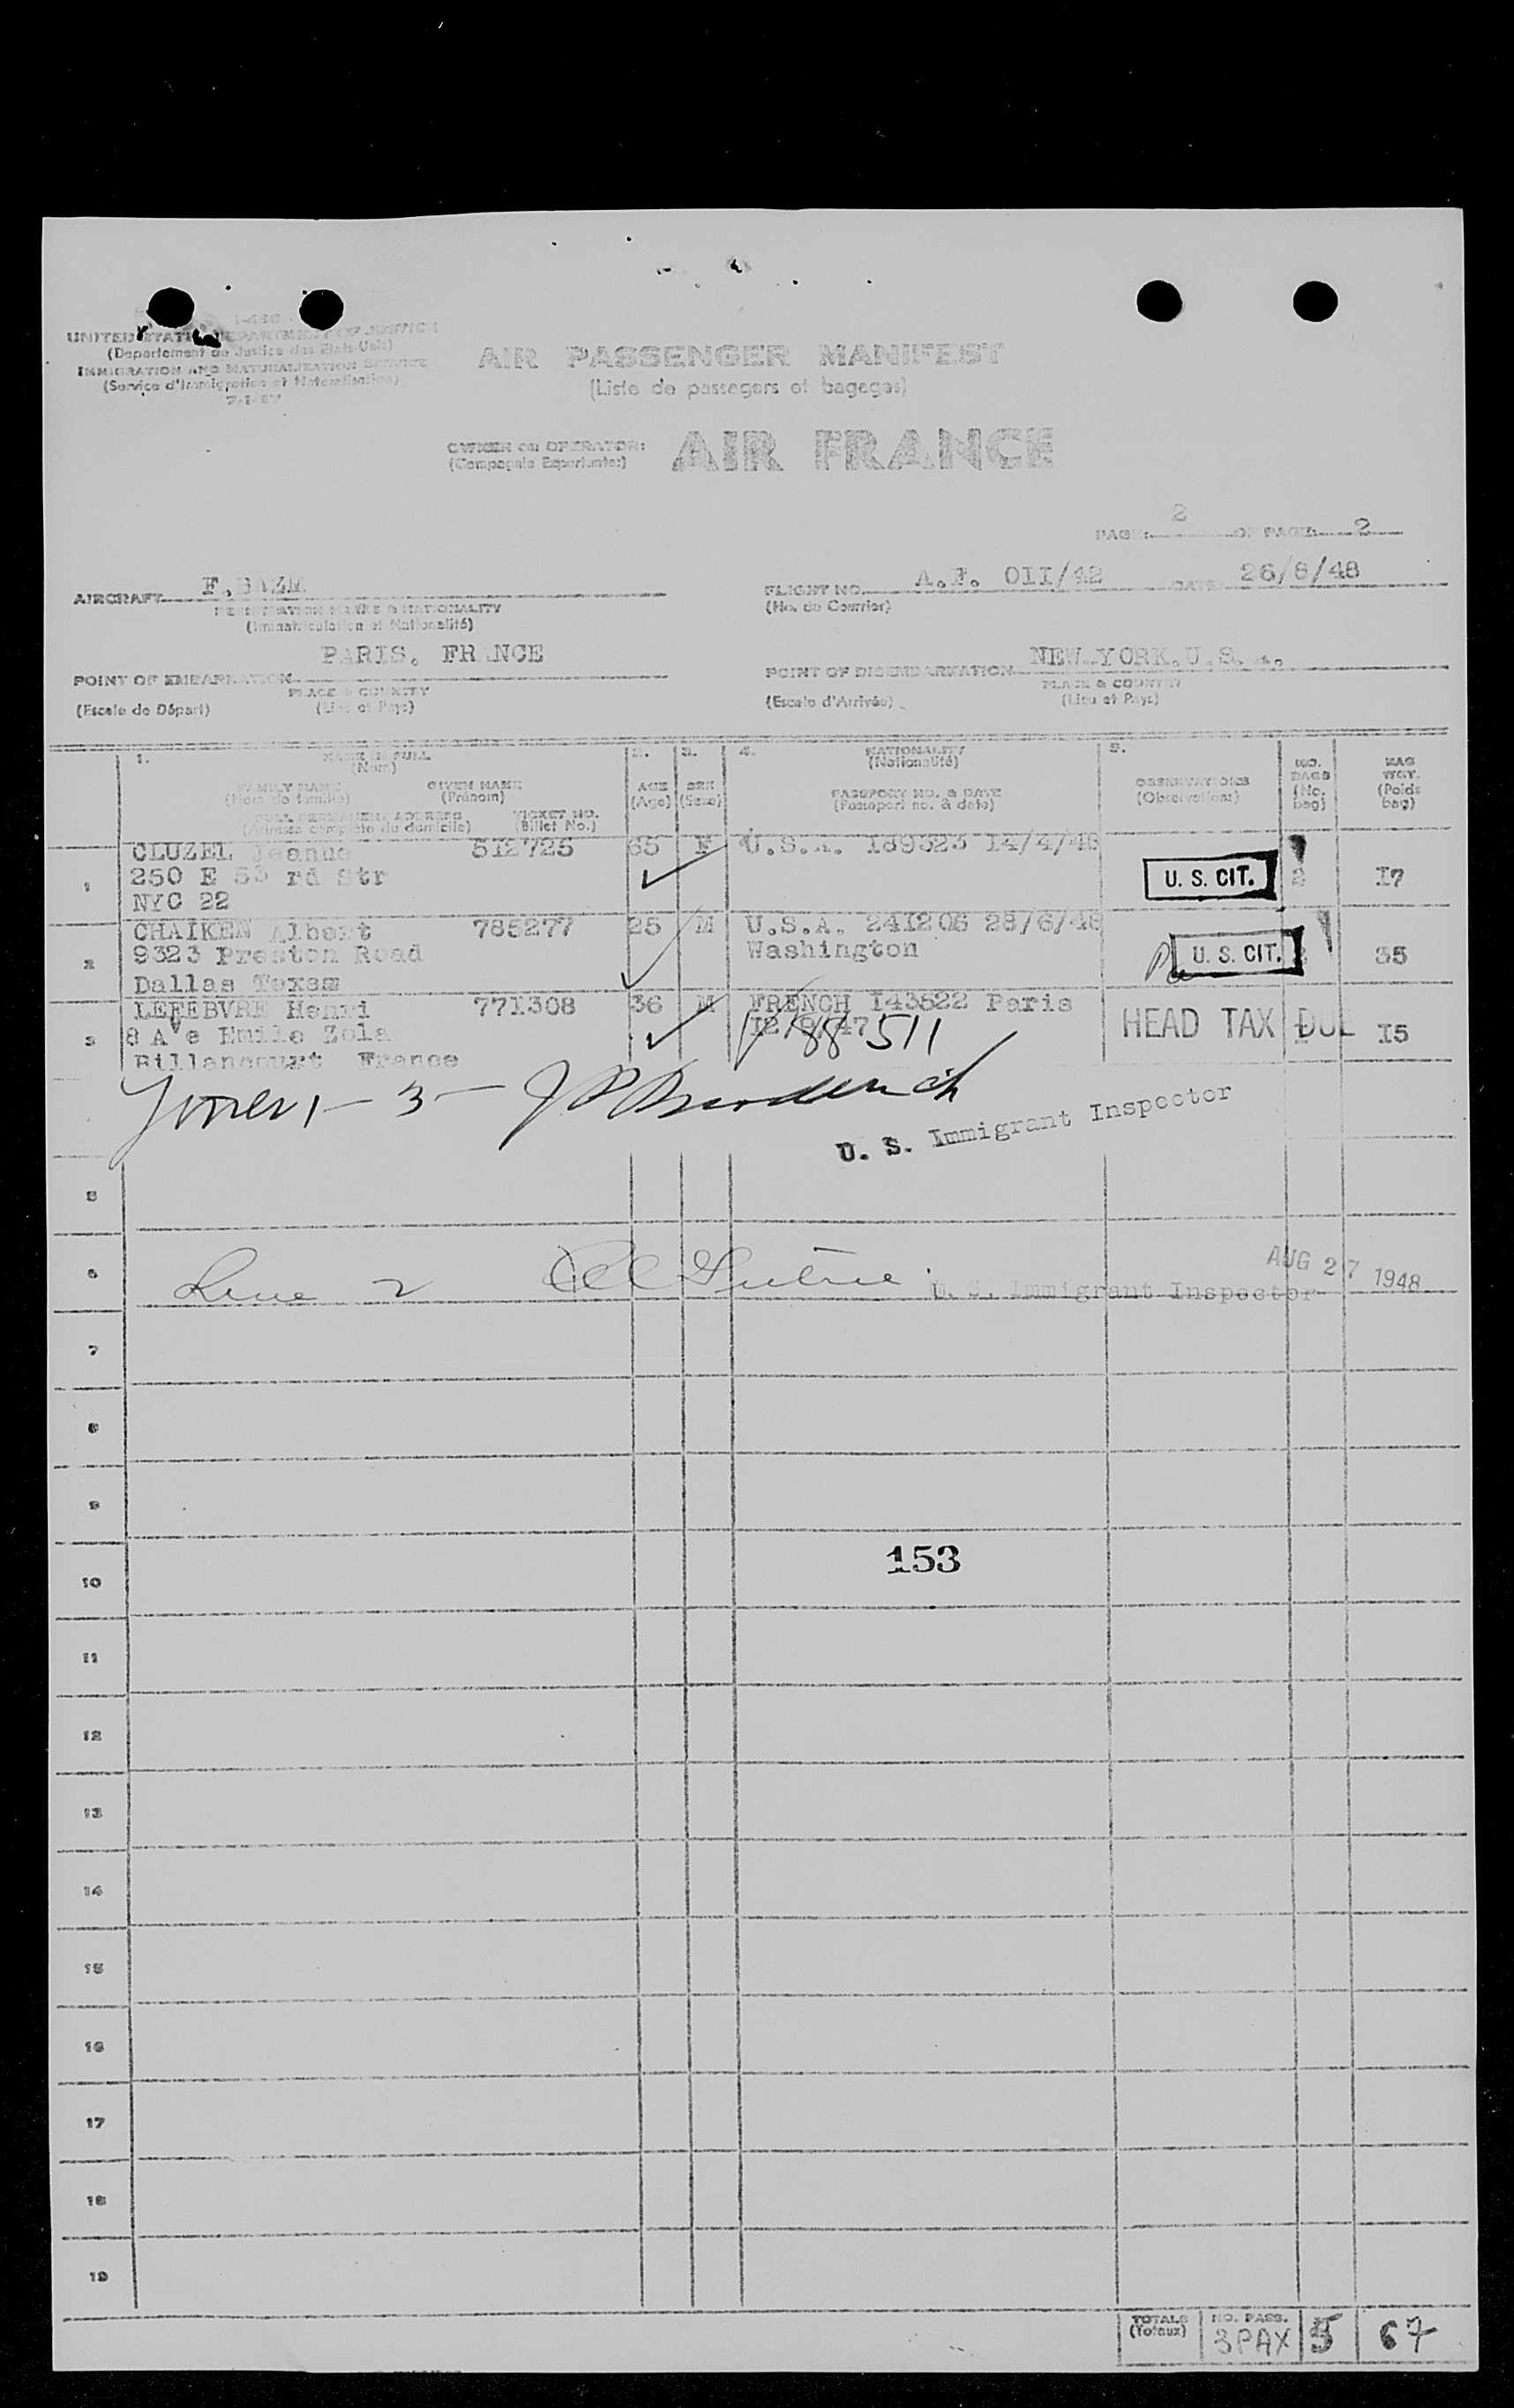 I-466
UNITED STATES DEPARTMENT OF JUSTICE
(Departement de Justice des Etats-Unis)
IMMIGRATION AND NATURALIZATION SERVICE
(Service d'Immigration et Naturalisation)
7-1-47
AIR PASSENGER MANIFEST
(Liste de passagers et bagages)
OWNER OR OPERATOR: AIR FRANCE
(Compagnie Exploitante:)
PAGE: 2 OF PAGE: 2
AIRCRAFT F.BAZM FLIGHT NO. A.F. OII/42 DATE 26/8/48
REGISTRATION MARKS & NATIONALITY (No. du Courrier)
(Immatriculation et Nationalité)
POINT OF EMBARKATION PARIS. FRANCE POINT OF DISEMBARKATION NEW YORK.U.S.A.
PLACE & COUNTRY PLACE & COUNTRY
(Escale de Départ) (Lieu et Pays) (Escale d'Arrivée) (Lieu et Pays)
1. NAME IN FULL 2. 3. 4. NATIONALITY 5.
(Nom) (Nationalité)
FAMILY NAME GIVEN NAME AGE SEX PASSPORT NO. & DATE OBSERVATIONS NO. BAGS BAG WGT.
(Nom de famille) (Prénom) (Age) (Sexe) (Passeport no. & date) (Observations) (No. bag) (Poids bag)
FULL PERMANENT ADDRESS TICKET NO.
(Adresse complète du domicile) (Billet No.)
1 CLUZEL Jeanne 512725 65 F U.S.A. 189323 14/4/48 U. S. CIT. 2 I7
250 E 53 rd Str
NYC 22
2 CHAIKEN Albert 785277 25 M U.S.A. 241206 28/6/48 U. S. CIT. 35
9323 Preston Road Washington
Dallas Texas
3 LEFEBVRE Henri 771308 36 M FRENCH 143522 Paris HEAD TAX DUE I5
8 Ave Emile Zola I2/9/47
Billancourt France
V 188511
1-3
U. S. Immigrant Inspector
5
6 Line 2 U. S. Immigrant Inspector AUG 27 1948
7
8
9
10 153
11
12
13
14
15
16
17
18
19
TOTALS NO. PASS.
(Totaux) 3PAX 5 67